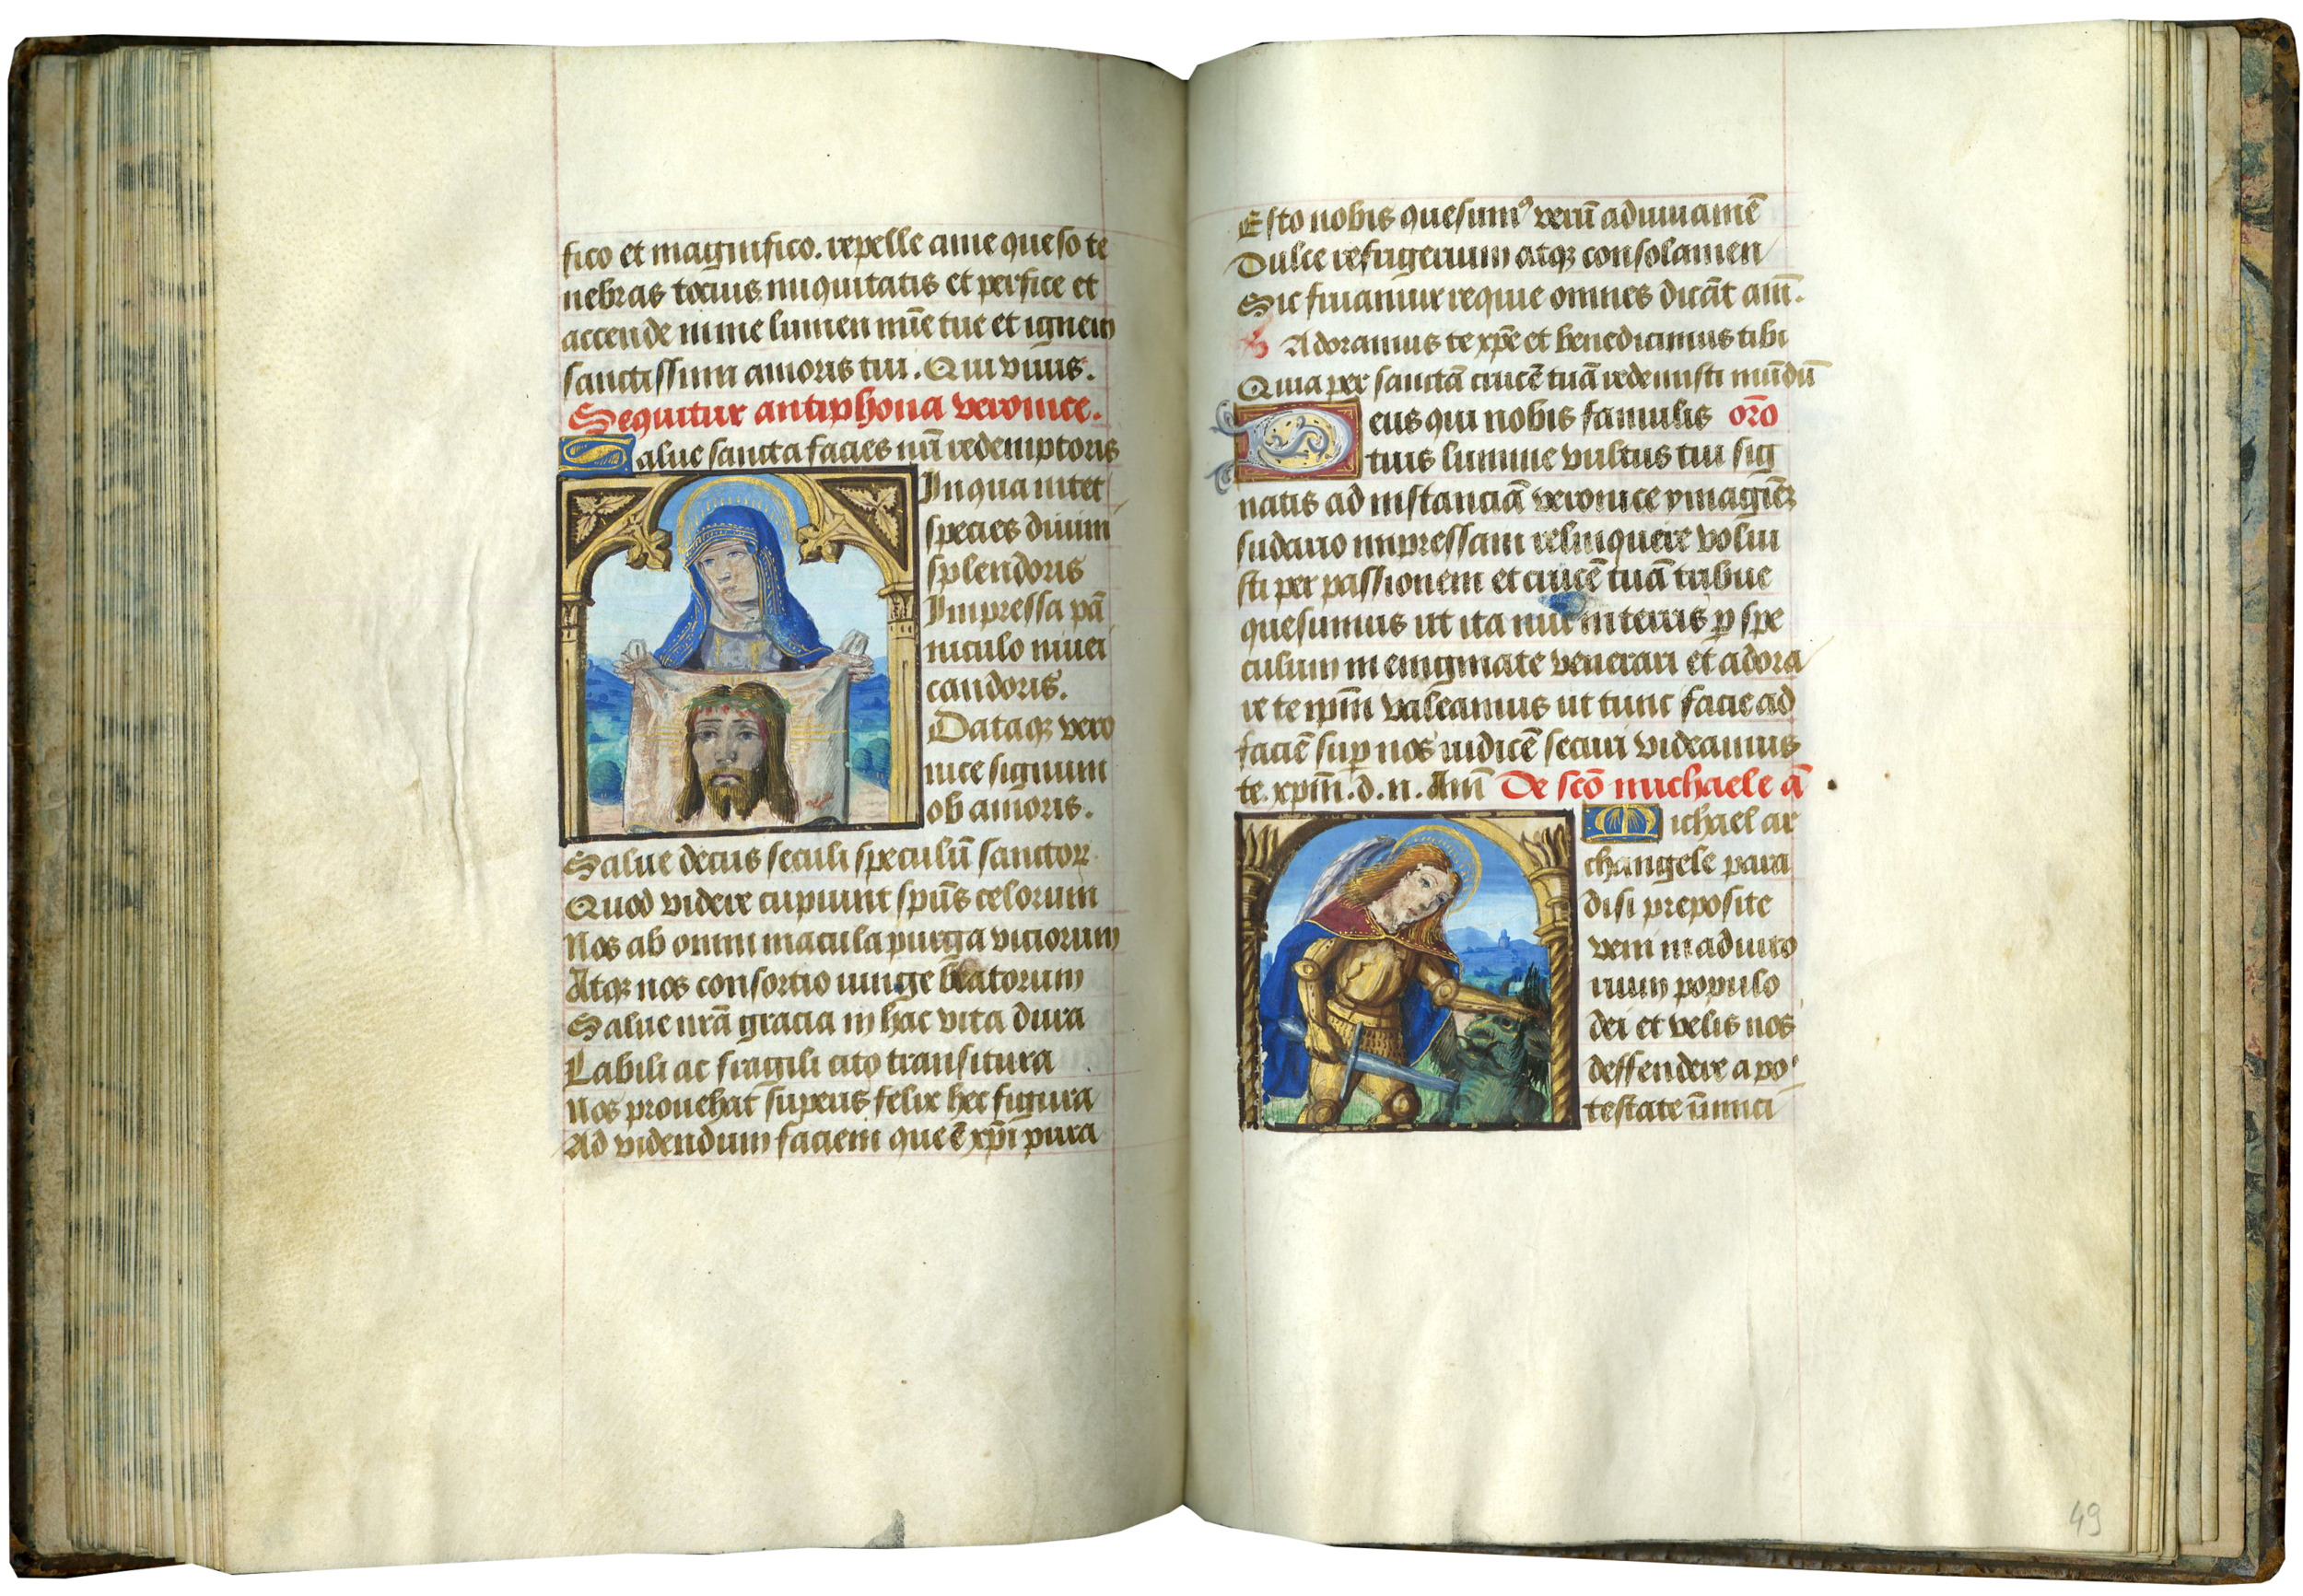 fico et magnifico. repelle a me queso te
nebras tocius iniquitatis et perfice et
accende in me lumen mīe tue et ignem
sanctissimi amoris tui. Qui viuis.
Sequitur antiphona veronice.
Salue sancta facies nr̄i redemptoris
In qua nitet
species diuini
splendoris
Impressa pā
niculo niuei
candoris.
Dataqꝫ vero
nice signum
ob amoris.
Salue decus seculi speculū sanctoꝝ
Quod videre cupiunt spūs celorum
Nos ab omni macula purga viciorum
Atqꝫ nos consortio iunge beatorum
Salue nrā gracia in hac vita dura
Labili ac fragili cito transitura
Nos prouehat superis felix hec figura
Ad videndum faciem que ē xp̄i pura
Esto nobis quesumꝰ verū adiuuamē
Dulce refugerium atqꝫ consolamen
Sic fruamur requie omnes dicāt am̄.
Adoramus te xp̄e et benedicimus tibi
Quia per sanctā crucē tuā redemisti mūdū
Deus qui nobis famulis orō
tuis lumine vultus tui sig
natis ad instanciā veronice ymaginē
sudario impressam relinquere volui
sti per passionem et crucē tuā tribue
quesumus ut ita nūc in terris ꝑ spe
culum in enigmate venerari et adora
re te ip̄m valeamus ut tunc facie ad
faciē suꝑ nos iudicē securi videamus
te. xp̄m̄. d. n. Am̄ De scō michaele ā
Michael ar
changele para
disi preposite
veni in adiuto
rium populo
dei et velis nos
deffendere a po
testate inimici
49